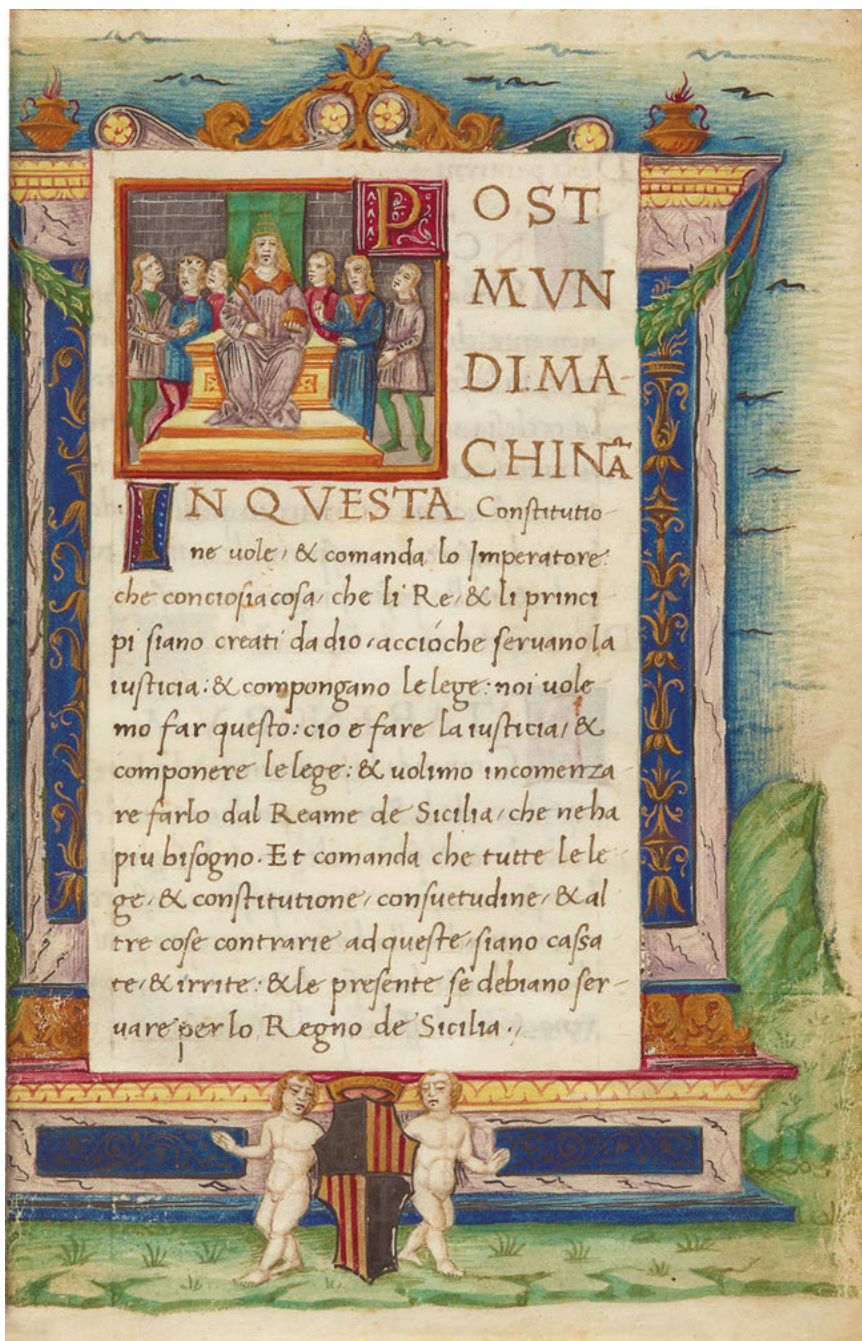 POST
MVN
DI MA-
CHINA᷉
IN QVESTA Constitutio-
ne uole, & comanda lo Imperatore
che conciosia cosa, che li Re, & li princi
pi siano creati da dio, acciòche seruano la
iusticia: & compongano le lege: noi uole
mo far questo: cio e fare la iusticia, &
componere le lege: & uolimo incomenza-
re farlo dal Reame de Sicilia, che ne ha
piu bisogno. Et comanda che tutte le le-
ge, & constitutione, consuetudine, & al
tre cose contrarie ad queste, siano cassa
te, & irrite: & le presente se debiano ser-
uare per lo Regno de Sicilia.,